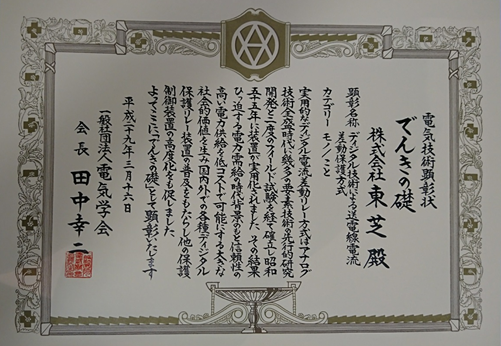 電気技術顕彰状
でんきの礎
株式会社 東芝 殿
顕彰名称 ディジタル技術による送電線電流
差動保護方式
カテゴリー モノ、こと
実用的なディジタル電流差動リレー方式はアナログ
技術全盛時代に幾多の要素技術の先行的研究
開発と二度のフィールド試験を経て確立し昭和
五十五年に装置が実用化されました。その結果
ひっ迫する電力需給の時代背景のもと信頼性の
高い電力供給を低コストで可能にする大きな
社会的価値を生み国内外での各種ディジタル
保護リレー装置の普及をもたらし他の保護
制御装置の高度化をも促しました。
よってここに「でんきの礎」として顕彰いたします
平成二十九年三月十六日
一般社団法人 電気学会
会長 田中幸二